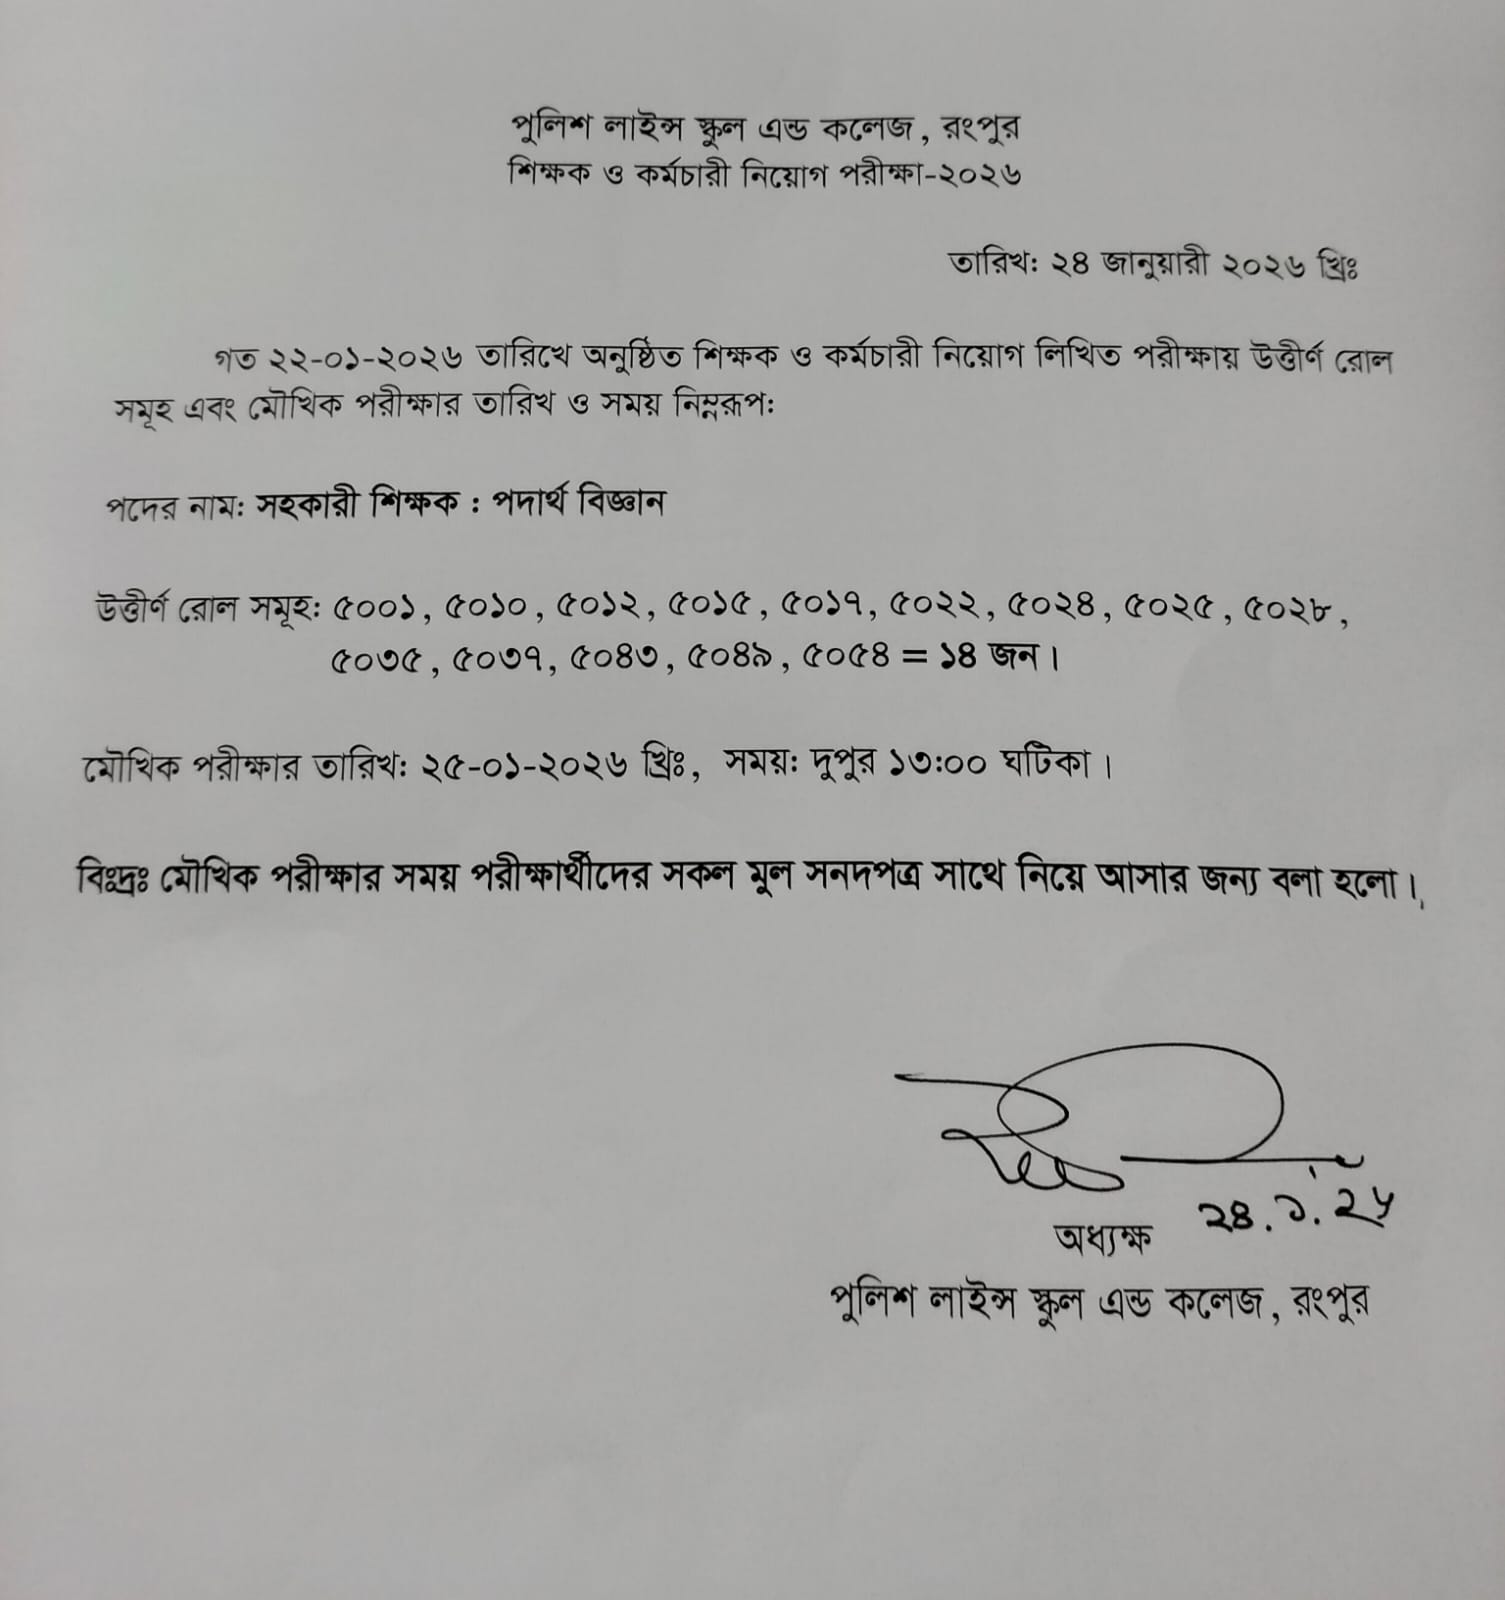 পুলিশ লাইন্স স্কুল এন্ড কলেজ, রংপুর
শিক্ষক ও কর্মচারী নিয়োগ পরীক্ষা-২০২৬
তারিখ: ২৪ জানুয়ারী ২০২৬ খ্রিঃ
গত ২২-০১-২০২৬ তারিখে অনুষ্ঠিত শিক্ষক ও কর্মচারী নিয়োগ লিখিত পরীক্ষায় উত্তীর্ণ রোল
সমূহ এবং মৌখিক পরীক্ষার তারিখ ও সময় নিম্নরূপ:
পদের নাম: সহকারী শিক্ষক : পদার্থ বিজ্ঞান
উত্তীর্ণ রোল সমূহ: ৫০০১, ৫০১০, ৫০১২, ৫০১৫, ৫০১৭, ৫০২২, ৫০২৪, ৫০২৫, ৫০২৮,
৫০৩৫, ৫০৩৭, ৫০৪৩, ৫০৪৯, ৫০৫৪ = ১৪ জন।
মৌখিক পরীক্ষার তারিখ: ২৫-০১-২০২৬ খ্রিঃ, সময়: দুপুর ১৩:০০ ঘটিকা।
বিঃদ্রঃ মৌখিক পরীক্ষার সময় পরীক্ষার্থীদের সকল মুল সনদপত্র সাথে নিয়ে আসার জন্য বলা হলো।
২৪.১.২৬
অধ্যক্ষ
পুলিশ লাইন্স স্কুল এন্ড কলেজ, রংপুর